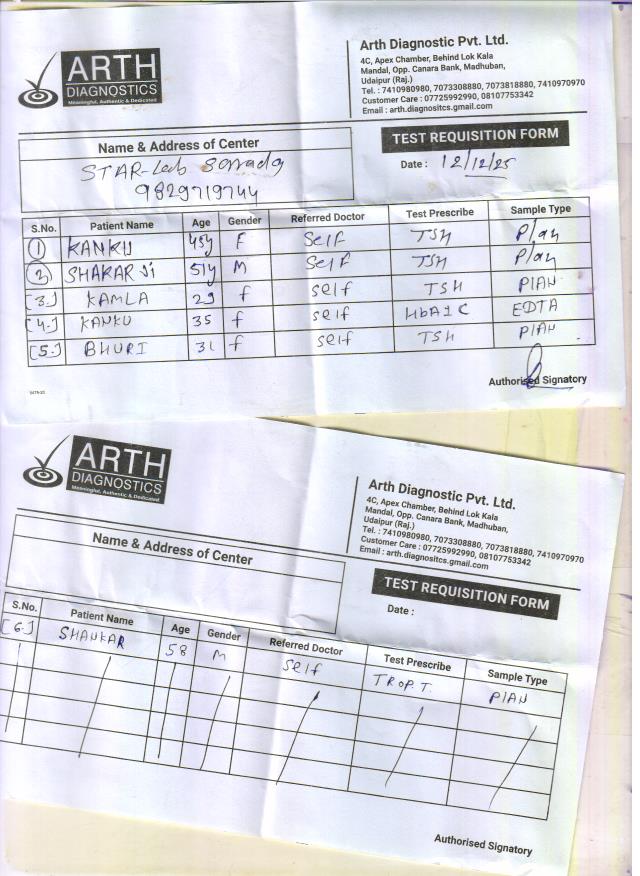 ARTH
DIAGNOSTICS
Meaningful, Authentic & Dedicated
Arth Diagnostic Pvt. Ltd.
4C, Apex Chamber, Behind Lok Kala
Mandal, Opp. Canara Bank, Madhuban,
Udaipur (Raj.)
Tel. : 7410980980, 7073308880, 7073818880, 7410970970
Customer Care : 07725992990, 08107753342
Email : arth.diagnositcs.gmail.com
Name & Address of Center
STAR-Lab
9829719744
TEST REQUISITION FORM
Date : 12/12/25
S.No. Patient Name Age Gender Referred Doctor Test Prescribe Sample Type
1 KANKU 45y F Self TSH Plan
2 SHAKAR Ji 51y M Self TSH Plan
[3.] KAMLA 29 f self TSH PlAN
[4.] KANKU 35 f self HbA1C EDTA
[5.] BHURI 31 f self TSH PlAN
Authorised Signatory
ARTH
DIAGNOSTICS
Meaningful, Authentic & Dedicated
Arth Diagnostic Pvt. Ltd.
4C, Apex Chamber, Behind Lok Kala
Mandal, Opp. Canara Bank, Madhuban,
Udaipur (Raj.)
Tel. : 7410980980, 7073308880, 7073818880, 7410970970
Customer Care : 07725992990, 08107753342
Email : arth.diagnositcs.gmail.com
Name & Address of Center
TEST REQUISITION FORM
Date :
S.No. Patient Name Age Gender Referred Doctor Test Prescribe Sample Type
[6.] SHANKAR 58 M self TROP.T. PlAN
Authorised Signatory